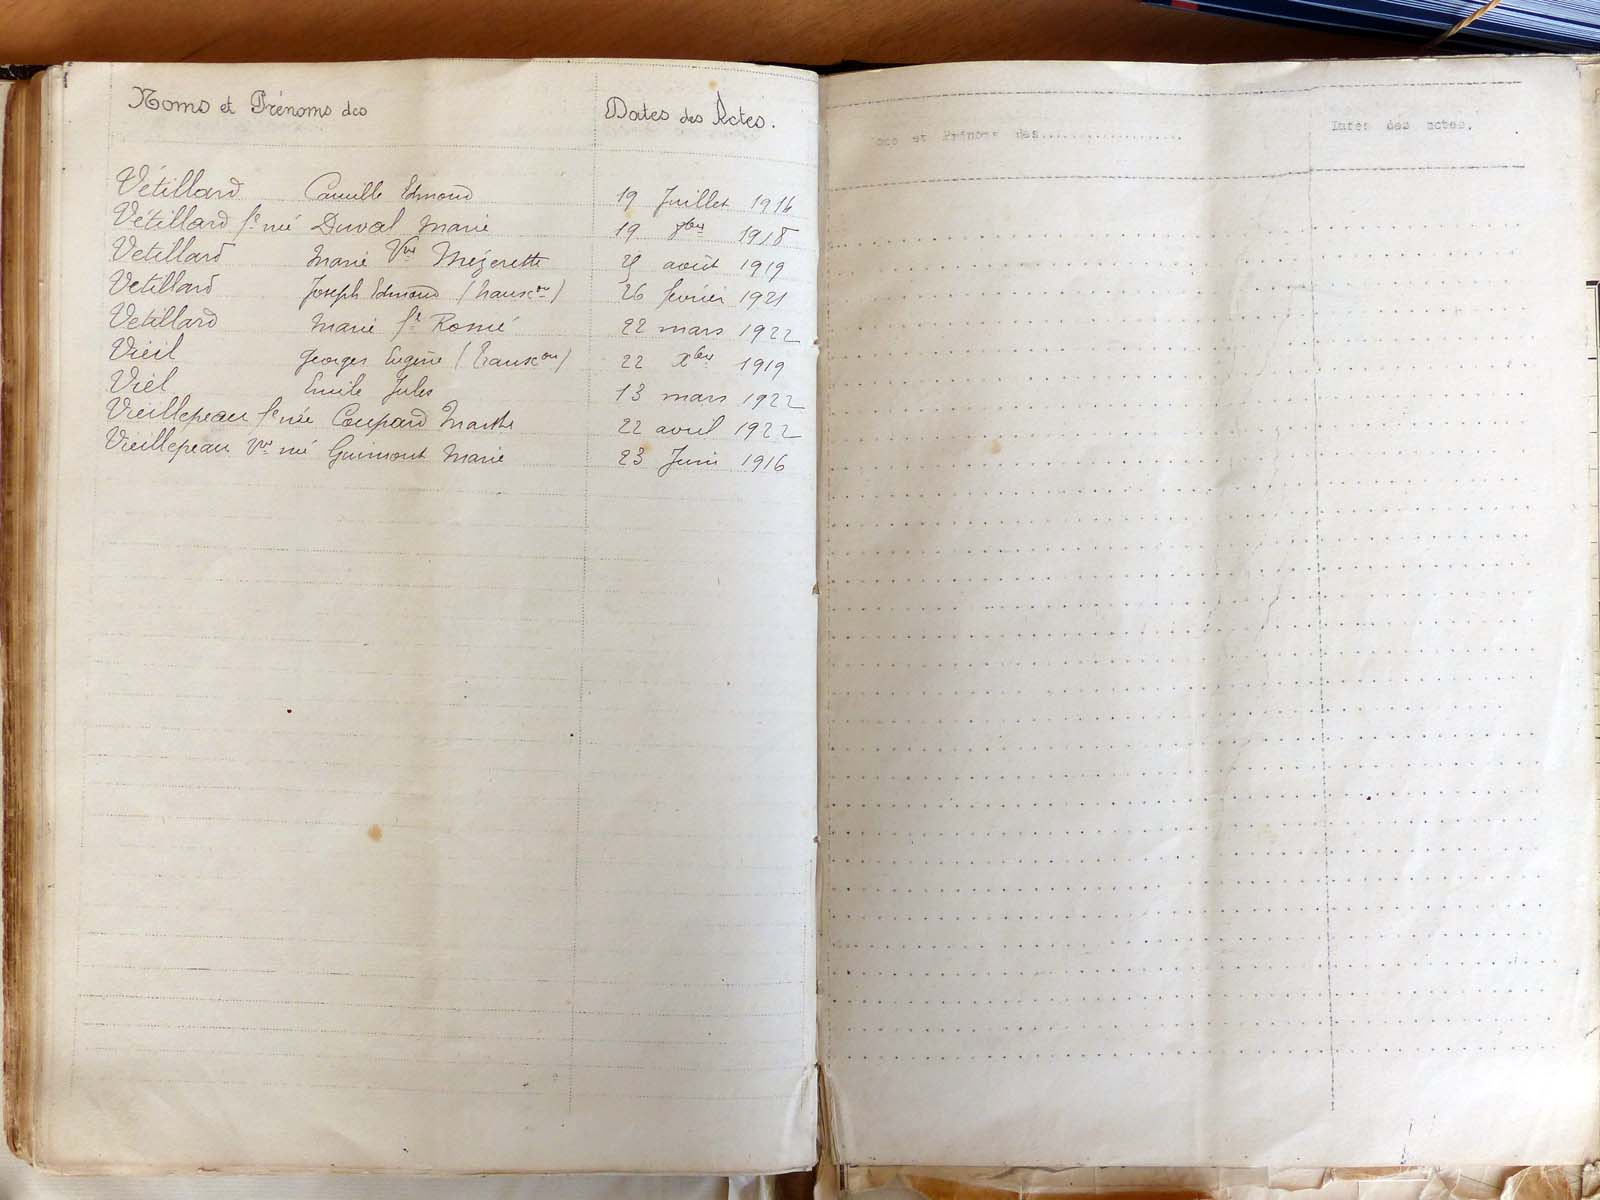 Noms et Prénoms des
Dates des Actes.
Vétillard Camille Edmond 19 Juillet 1916
Vétillard fe née Duval Marie 19 7bre 1918
Vetillard Marie Vve Mézerette août 1919
Vetillard Joseph Edmond (transcon) 26 février 1921
Vetillard Marie fe Romé 22 mars 1922
Vieil Georges Eugène (transcon) 22 Xbre 1919
Viel Emile Jules 13 mars 1922
Vieillepeau fe née Coupard Marthe 22 avril 1922
Vieillepeau Vve née Guimont Marie 23 Juin 1916
et Prénoms des
Dates des actes.